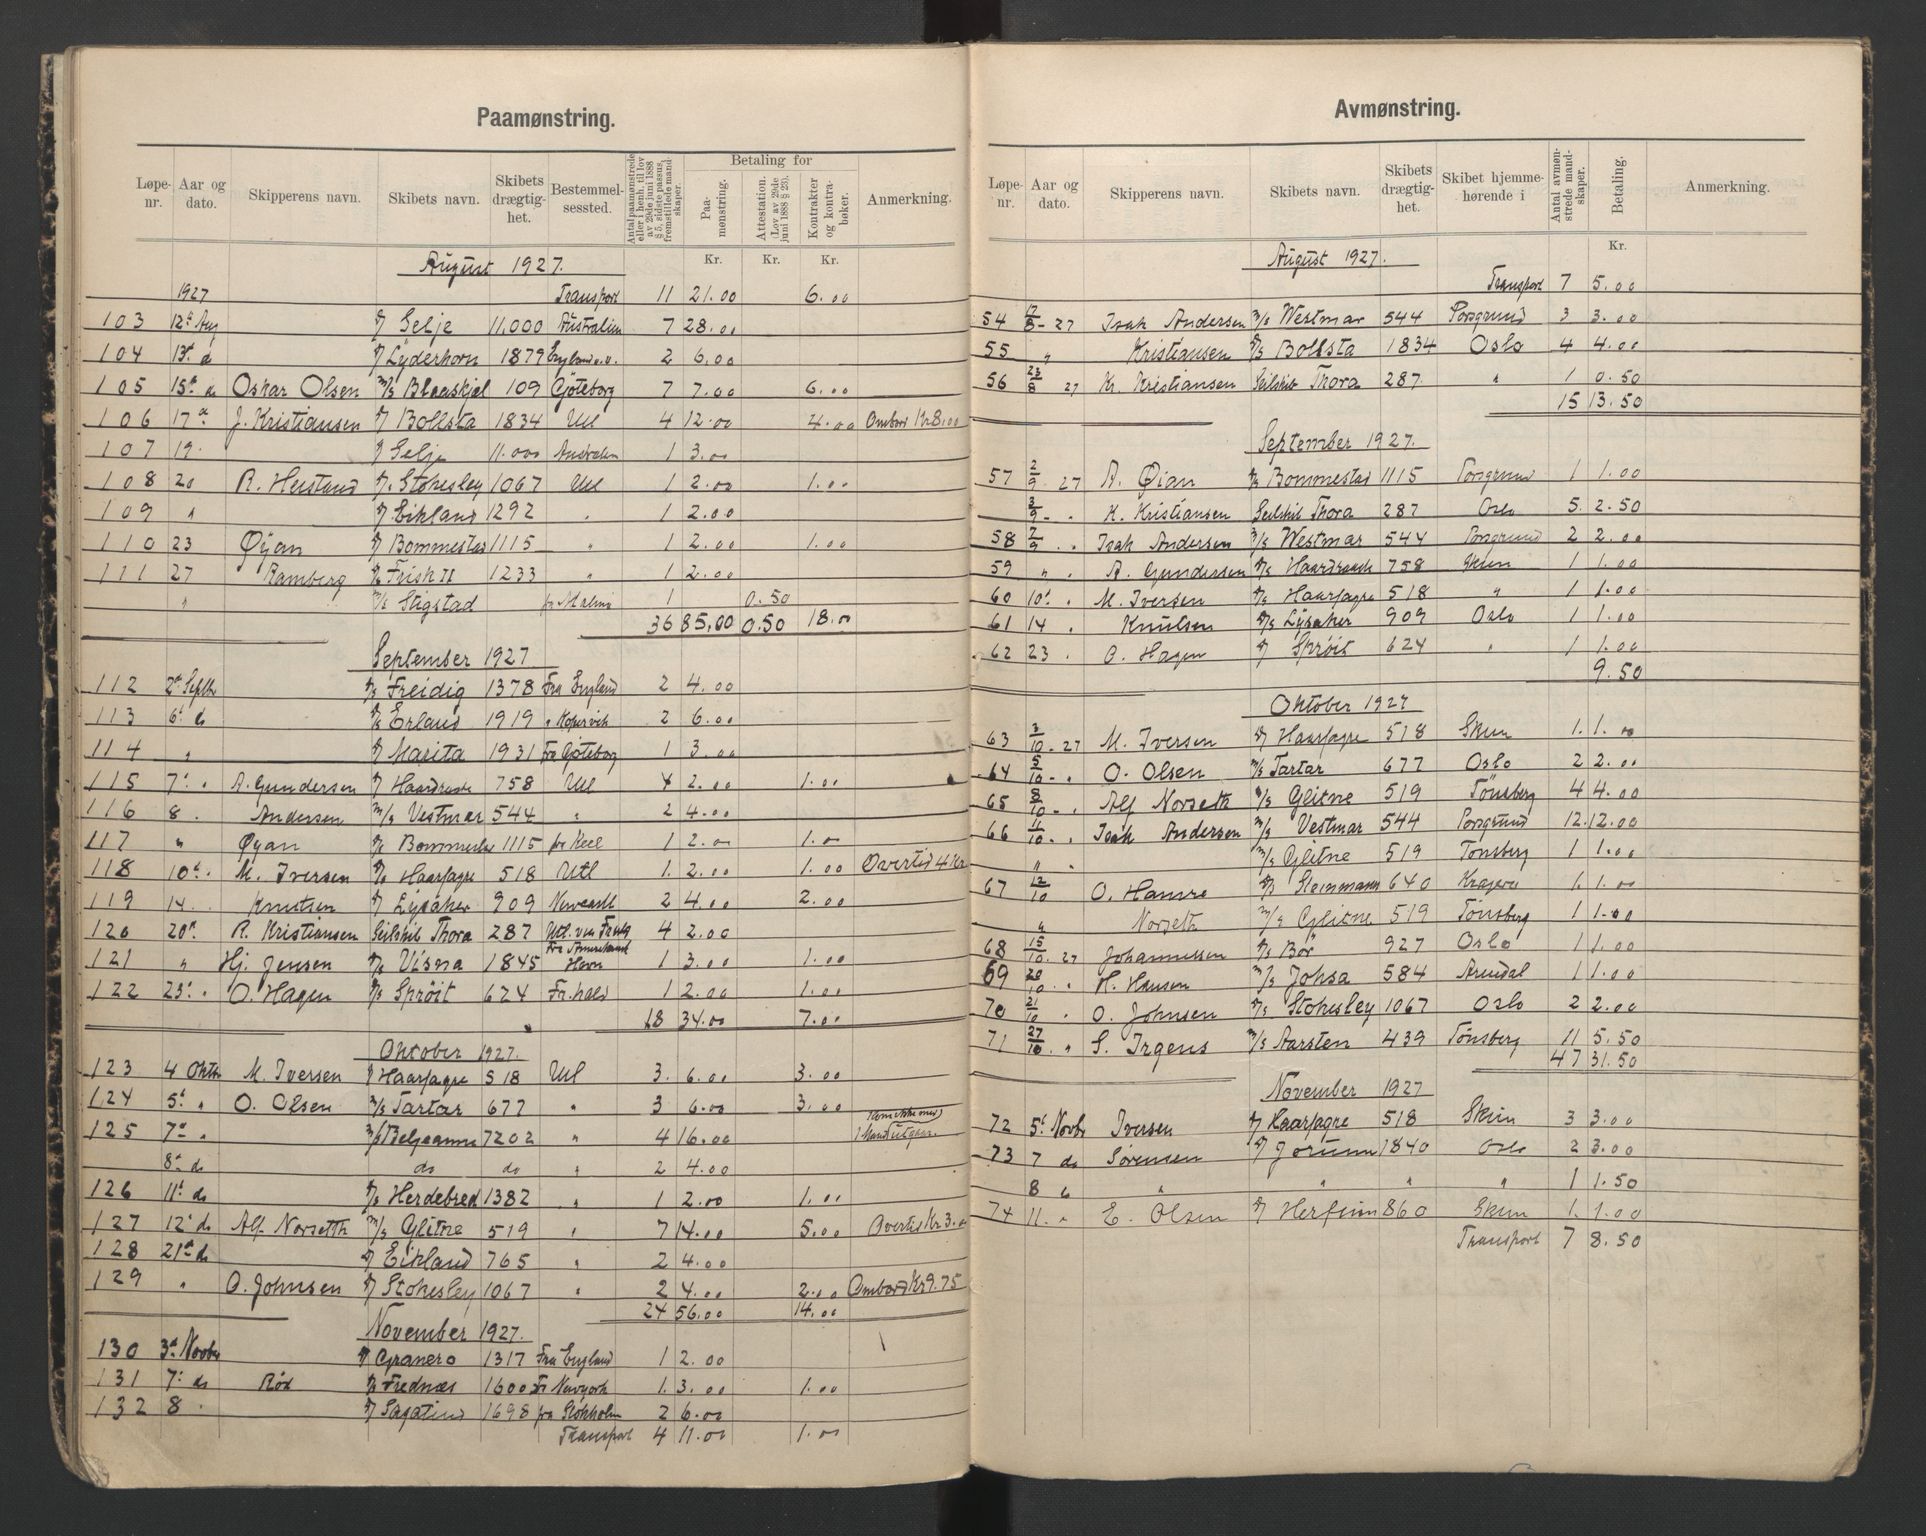 Paamønstring.
Løpe-nr. Aar og dato. Skipperens navn. Skibets navn. Skibets drægtighet. Bestemmelsessted. Antal paamønstrede eller i henh. til lov av 29de juni 1888 § 5, sidste passus, fremstillede mandskaper. Betaling for Paamønstring. Attestation. (Lov av 29de juni 1888 § 23). Kontrakter og kontrabøker. Anmerkning.
Kr. Kr. Kr.
August 1927.
1927 Transport 11 21.00 6.00
103 12te Aug S/S Selje 11,000 Australien 7 28.00
104 13de d S/S Lyderhorn 1879 England o.v. 2 6.00
105 15de d Oskar Olsen M/S Blaaskjæl 109 Gøteborg 7 7.00 6.00
106 17de J. Kristiansen S/S Bollsta 1834 Utl 4 12.00 4.00 Ombord Kr 8.00
107 19. S/S Selje 11.000 Australien 1 3.00
108 20 R. Herstand S/S Stokesley 1067 Utl 1 2.00 1.00
109 " S/S Eikland 1292 " 1 2.00
110 23 Øyan S/S Bommestad 1115 " 1 2.00 1.00
111 27 Ramberg S/S Frisk II 1233 " 1 2.00
" M/S Stigstad fr Malmø 1 0.50
36 85.00 0.50 18.00
September 1927
112 2de Septbr S/S Freidig 1378 Fra England 2 4.00
113 6te d S/S Erland 1919 " Kopervik 2 6.00
114 " S/S Marita 1931 Fra Gøteborg 1 3.00
115 7de " A. Gundersen S/S Haardraade 758 Utl 4 2.00 1.00
116 8 . Andersen M/S Vestmar 544 " 2 4.00
117 " Øyan S/S Bommestad 1115 fr Keel 1 2.00 1.00
118 10de . M. Iversen S/S Haarfagre 518 Utl 1. 2.00 1.00 Overtid 4 Kr
119 14 . Knutsen S/S Lysaker 909 Newcastle 2 4.00 2.00
120 20de R. Kristiansen Seilskib Thora 287 Utl. 4 2.00
121 " Hj. Jensen S/S Visna 1845 Fra Amerikansk Havn 1 3.00 1.00
122 23de . O. Hagen S/S Sprøit 624 Fr.hald 1 2.00 1.00
18 34.00 7.00
Oktober 1927.
123 4 Oktb M. Iversen S/S Haarfagre 518 Utl 3. 6.00 3.00
124 5te " O. Olsen M/S Tartar 677 " 3 6.00 3.00
125 7de " M/S Beljeanne 7202 " 4 16.00
8de do do do " 2 4.00
126 11te do S/S Herdebred 1382 " 1 2.00 1.00
127 12te do Alf Norseth M/S Glitne 519 " 7 14.00 5.00 Overtid Kr 3.00
128 21de do S/S Eikland 765 " 2 4.00
129 " O. Johnsen S/S Stokesley 1067 " 2 4.00 2.00 Ombord Kr 9.75
24 56.00 14.00
November 1927.
130 3de Novbr S/S Granero 1317 Fra England 1 2.00
131 7de do Rød S/S Frednæs 1600 Fr Newyork 1. 3.00 1.00
132 8 . S/S Sagatind 1698 fra Stokholm 2 6.00
Transport 4 11.00 1.00
Avmønstring.
Løpe-nr. Aar og dato. Skipperens navn. Skibets navn. Skibets drægtighet. Skibet hjemmehørende i Antal avmønstrede mandskaper. Betaling. Anmerkning.
Kr.
August 1927.
Transport 7 5.00
54 17/8 - 27 Isak Andersen M/S Westmar 544 Porsgrund 3 3.00
55 " Kristiansen S/S Bollsta 1834 Oslo 4 4.00
56 23/8 27 Kr. Kristiansen Seilskib Thora 287 " 1 0.50
15 13.50
September 1927.
57 2/9 - 27 A. Øian S/S Bommestad 1115 Porsgrund 1 1.00
3/9 - " K. Kristiansen Seilskib Thora 287 Oslo 5. 2.50
58 7/9 . " Isak Andersen M/S Westmar 544 Porsgrund 2 2.00
59 " " A. Gundersen S/S Haardraade 758 Skien 1 1.00
60 10de " M. Iversen S/S Haarfagre 518 " 1 1.00
61 14 " Knutsen S/S Lysaker 909 Oslo 1 1.00
62 23 . O. Hagen S/S Sprøit 624 " 1 1.00
9.50
Oktober 1927
63 3/10 - 27 M. Iversen S/S Haarfagre 518 Skien 1. 1.00
64 5/10 - " O. Olsen M/S Tartar 677 Oslo 2 2.00
65 8/10 - " Alf Norseth M/S Glitne 519 Tønsberg 4 4.00
66 11/10 - " Isak Andersen M/S Vestmar 544 Porsgrund 12. 12.00
" " M/S Glitne 519 Tønsberg 1 1.00
67 12/10 O. Hamre S/S Steinmann 640 Kragerø 1. 1.00
" Norseth M/S Glitne 519 Tønsberg 1 1.00
68 15/10 27 Johannessen S/S Bør 927 Oslo 1 1.00
69 20/10 " H. Hansen M/S Johsa 584 Arendal 1 1.00
70 21/10 " O. Johnsen S/S Stokesley 1067 Oslo 2 2.00
71 27/10 " S. Irgens M/S Aarsten 439 Tønsberg 11 5.50
47 31.50
November 1927
72 5te Novbr Iversen S/S Haarfagre 518 Skien 3 3.00
73 7 do Sørensen S/S Jorunn 1840 Oslo 2 3.00
8 " " " " " 1 1.50
74 11. " E. Olsen S/S Herfinn 860 Skien 1. 1.00
Transport 7 8.50